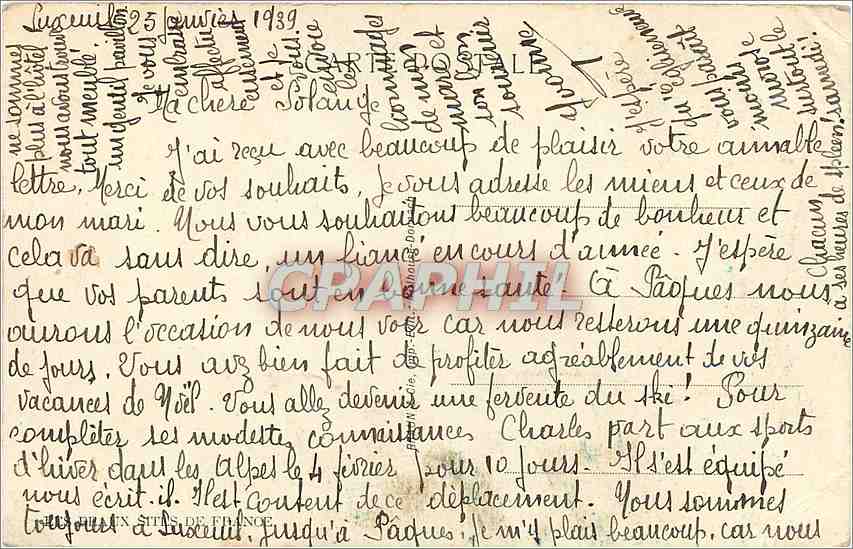 Luxeuil 25 Janvier 1939
CARTE POSTALE
Ma chère Solange
J'ai reçu avec beaucoup de plaisir votre aimable
lettre. Merci de vos souhaits. Je vous adresse les miens et ceux de
mon mari. Nous vous souhaitons beaucoup de bonheur et
cela va sans dire, un fiancé en cours d'année. J'espère
que vos parents sont en bonne santé. A Pâques nous
aurons l'occasion de nous voir car nous resterons une quinzaine
de jours. Vous avez bien fait de profiter agréablement de vos
vacances de Noël. Vous allez devenir une fervente du ski! Pour
compléter ses modestes connaissances Charles part aux sports
d'hiver dans les Alpes le 4 février pour 10 jours. Il s'est équipé
nous écrit-il. Il est content de ce déplacement. Nous sommes
toujours à Luxeuil, jusqu'à Pâques; je m'y plais beaucoup, car nous
LES BEAUX SITES DE FRANCE
ne sommes
plus à l'hôtel
nous avons trouvé
tout meublé
un gentil pavillon
Je vous
embrasse
affectu
eusement
et je
vous
envoie
les
hommages
de mon
mari et
son
souvenir
Yvonne
J'espère
qu'
vous paraît
moins
morose
surtout le
samedi!
Chacun
a ses heures de spleen
CPAPHIL